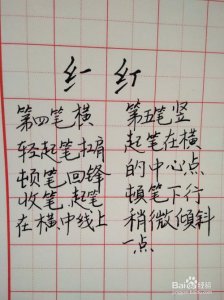 第四笔横
轻起笔扛肩
顿笔回锋
收笔,起笔
在横中线上
第五笔竖
起笔在横
的中心点
顿笔下行
稍微倾斜
一点
Baidu经验